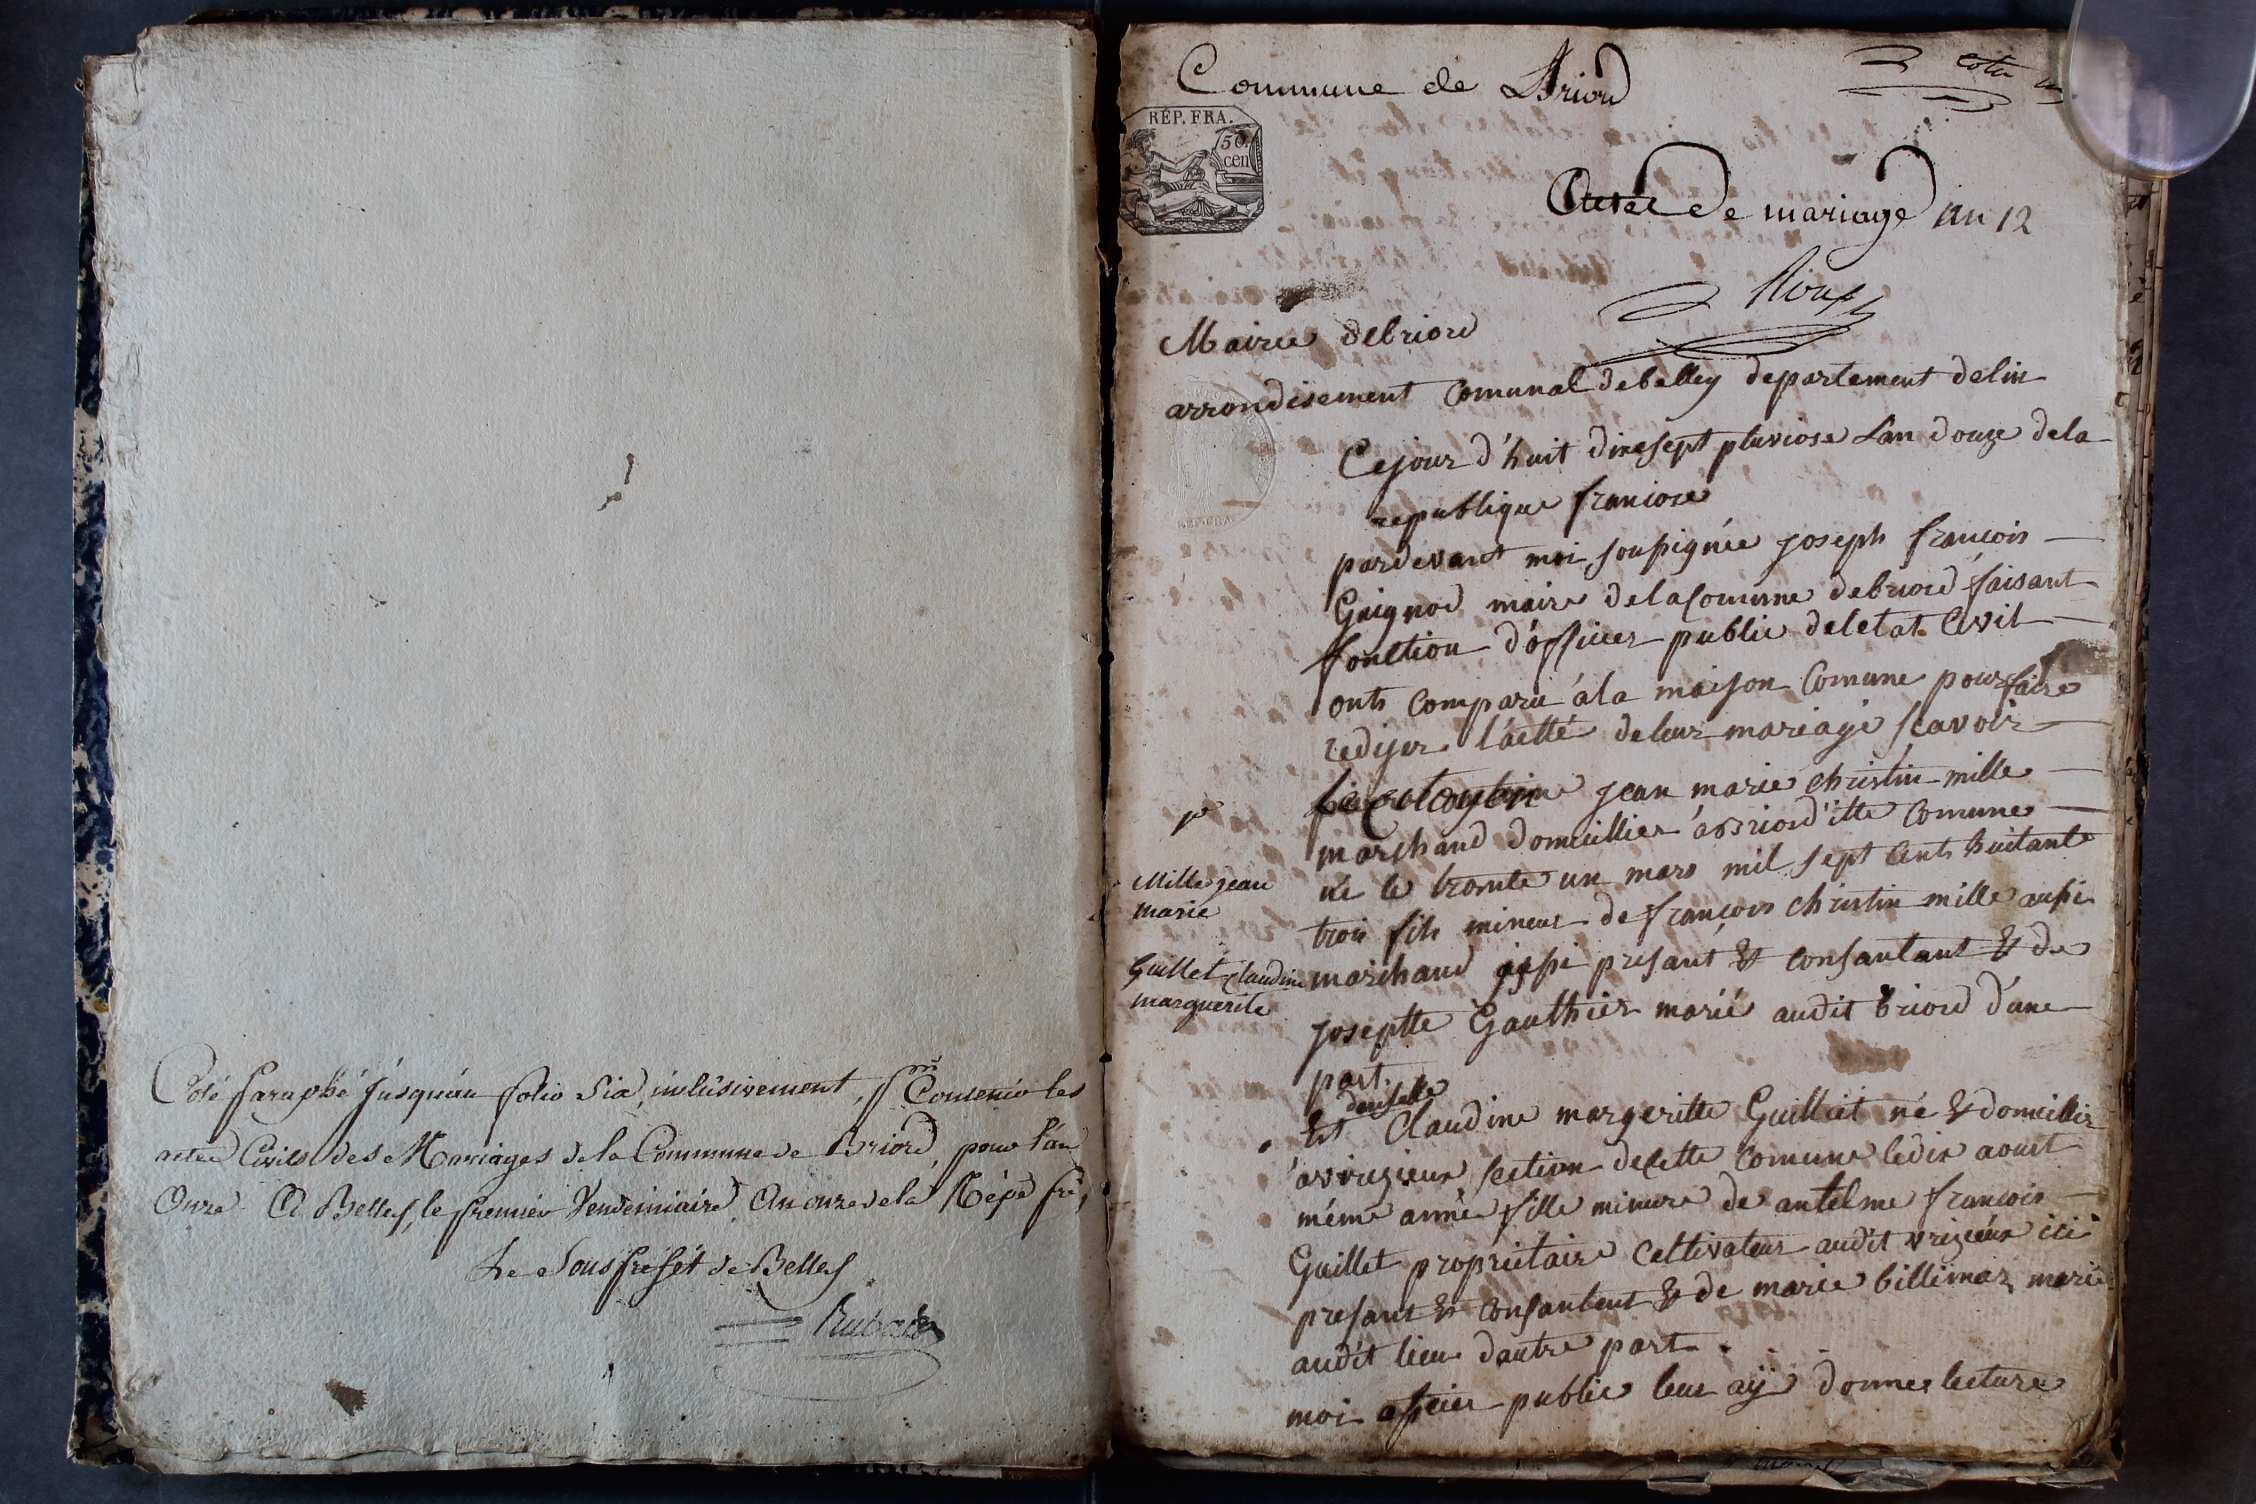 Coté Paraphé jusqu'au folio Six, inclusivement, pr Contenir les
actes Civils des Mariages de la Commune de Briord, pour l'an
Onze. A Belley, le premier Vendemiaire An onze de la Rép. fre,
Le Sous préfét de Belley
Commune de Briord
REP. FRA.
50
cen
Actes de mariage an 12
Mairie debriord
arrondisement comunal debelley departement delin
Cejour d'huit dixesept pluviose Lan douze dela
republique franciose
pardevant moi soussignée joseph francois
Guignod maire delacomune debriord faisant
fonction d'officier public deletat Civil
onts comparu àla maison Comune pour faire
rediger l'actte deleur mariage scavoir
jean marie christin mille
marchand domicillier àbriord d'itte comune
né le trente un mars mil sept cents huitante
trois fils mineur de françois christin mille aussi
marchand issi presant & consantant & de
joseptte Gauthier marié audit briord d'une
part.
demselle
Et Claudine margeritte Guilliet né & domicillir
àvrizieux section decette comune ledix aoust
méme année fille mineure de antelme francois
Guillet proprietaire celtivateur audit vrizieux ici
presant & consantent & de marie billimaz marié
audit lieu dautre part.
moi officier public leur aÿ donner lecture
Mille jean
marie
Guillet Claudine
marguerite